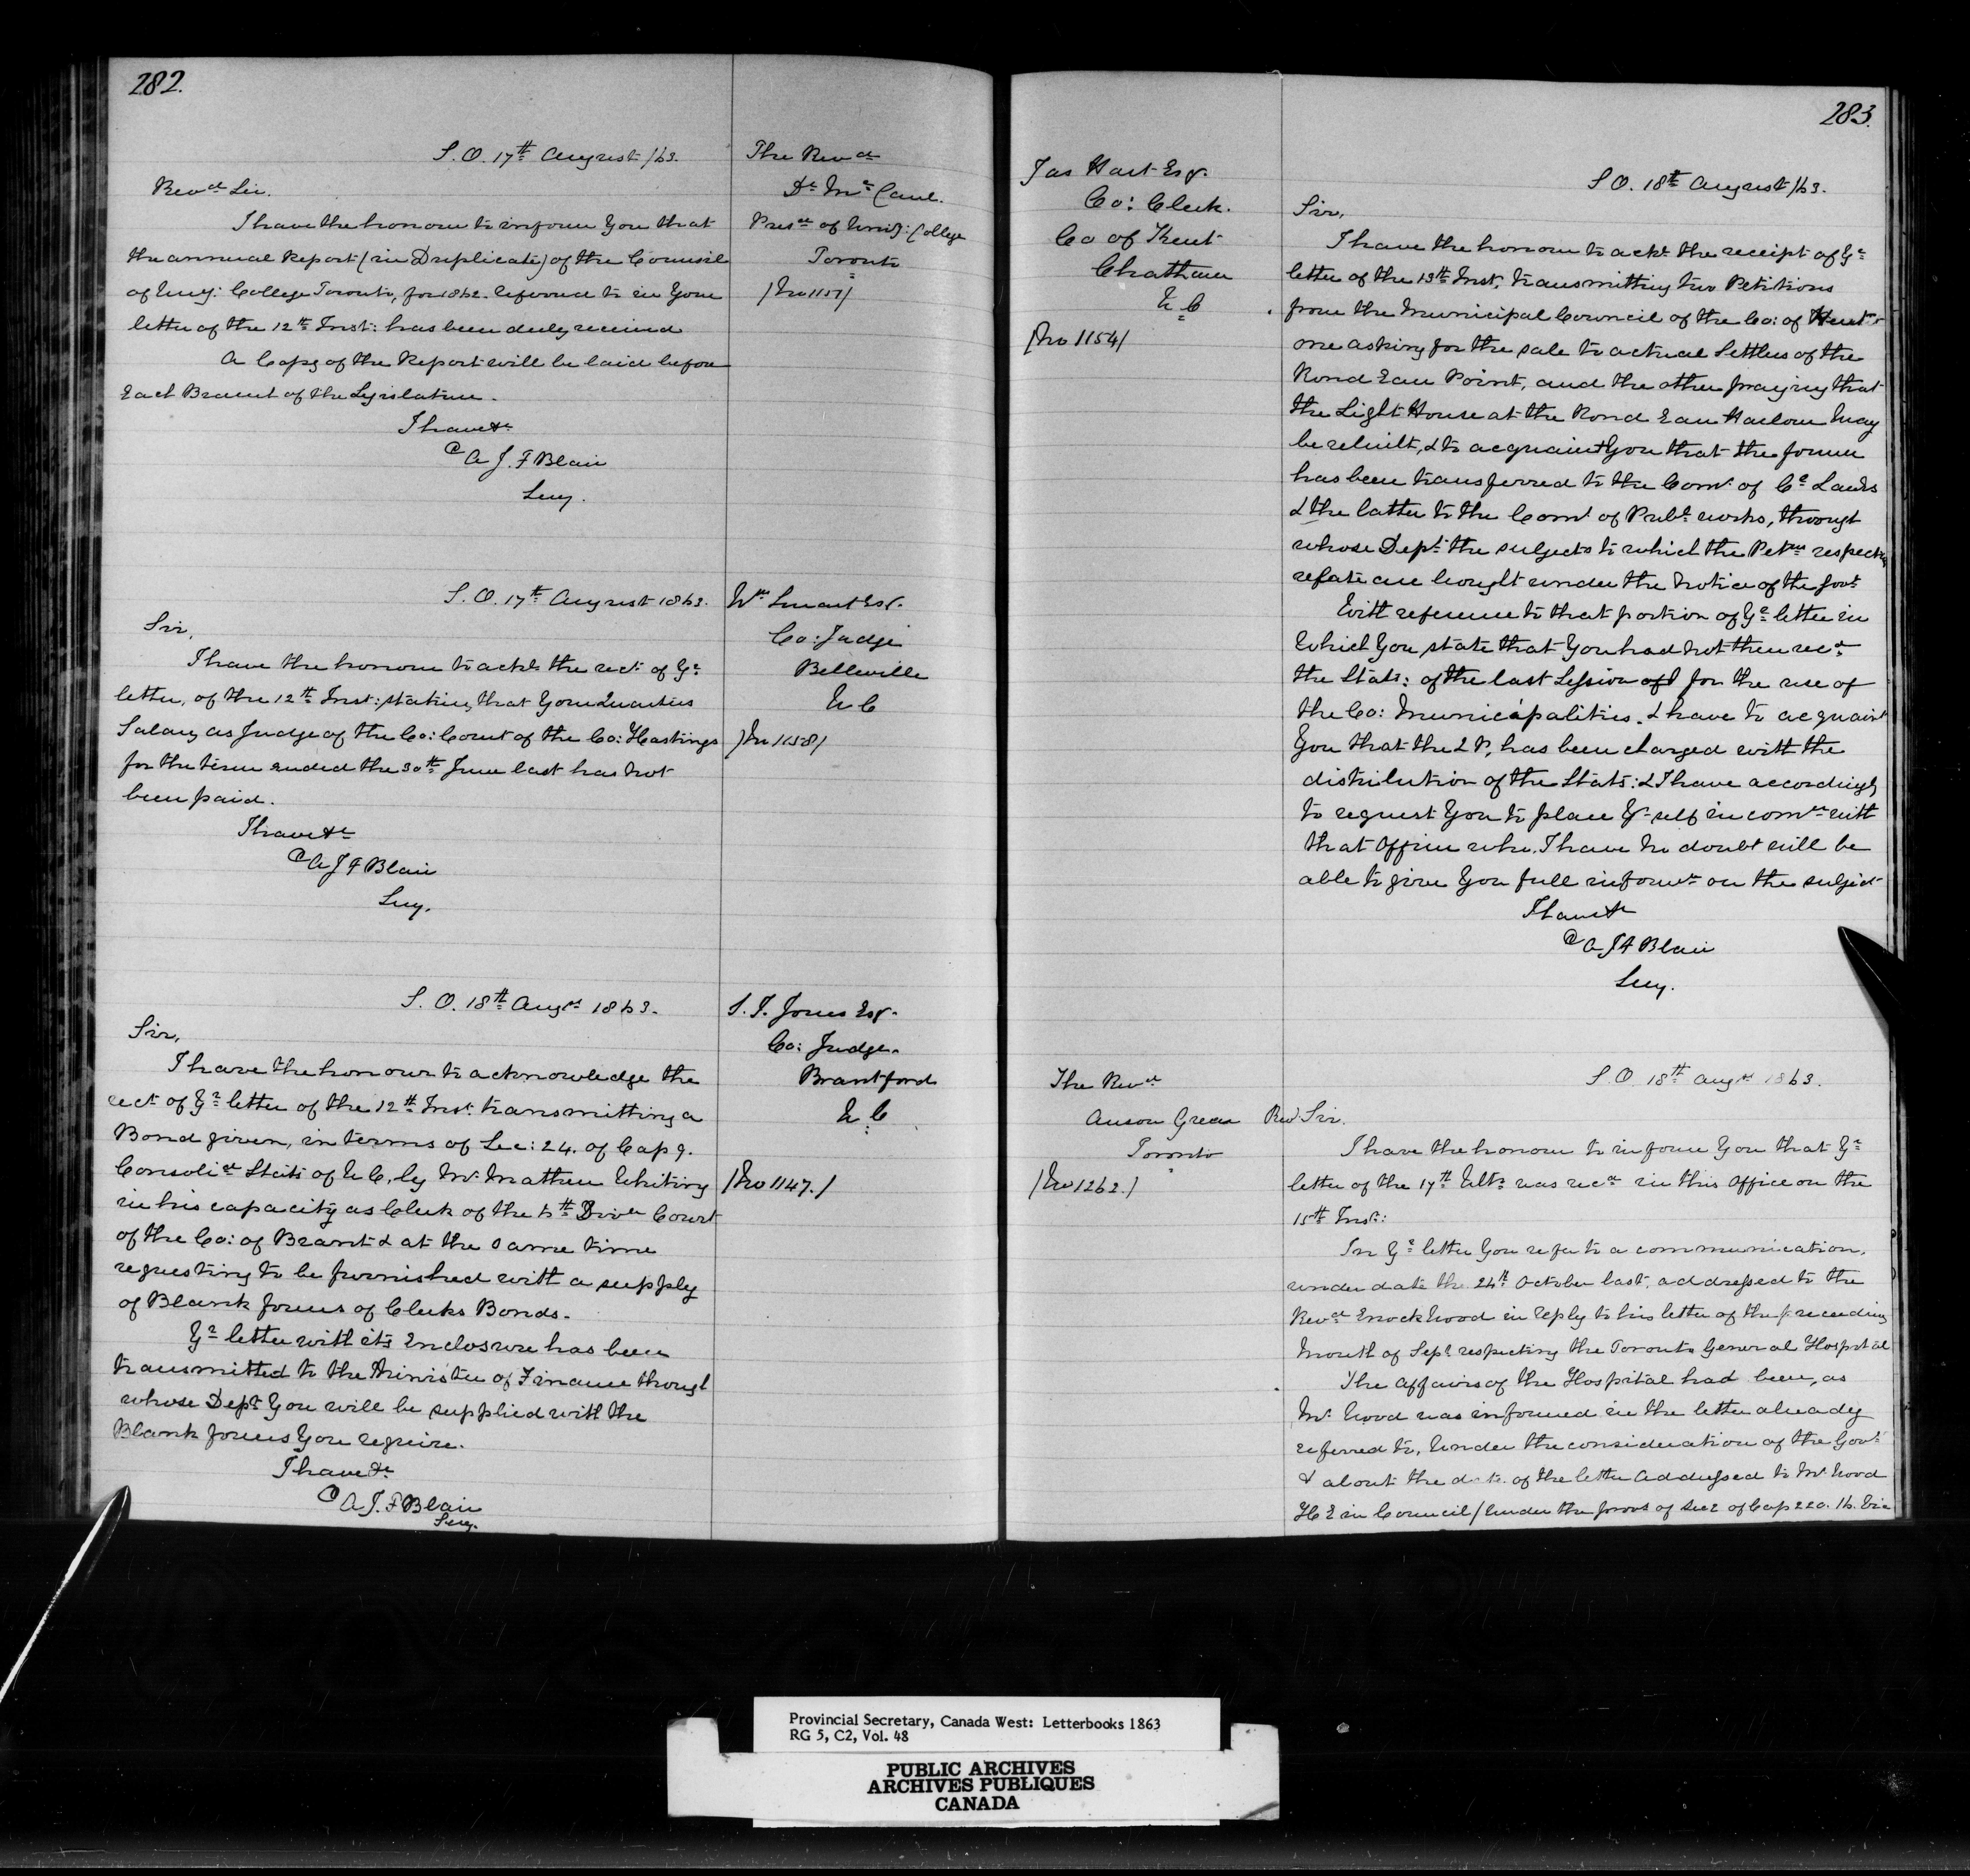 282.
S.O. 17th August /63.
Revd Sir.
I have the honour to inform You that
the annual Report (in Duplicate) of the Council
of Uny: College Toronto, for 1862. referred to in Your
letter of the 12th Inst: has been duly received
A Copy of the Report will be laid before
Each Branch of the Legislature.
I have &c
A J. F Blair
Secy.
The Revd
Dr Mc Caul.
Presdt of Univ: College
Toronto
/No 1157/
S.O. 17th August 1863.
Sir,
I have the honour to ackn the rect of Yr
letter, of the 12th Inst: stating that Your Quarters
Salary as Judge of the Co: Court of the Co: Hastings
for the term ended the 30th June last has not
been paid.
I have &c
A J F Blair
Secy.
Wm Smart Esq.
Co: Judge
Belleville
U C
/No 1158/
S.O. 18th Augst 1863.
Sir,
I have the honour to acknowledge the
rect of Yr letter of the 12th Inst transmitting a
Bond given, in terms of Sec: 24. of Cap 9.
Consolid Stats of U C, by Mr Mathew Whiting
in his capacity as Clerk of the 5th Divn Court
of the Co: of Brant & at the same time
requesting to be furnished with a supply
of Blank forms of Clerks Bonds.
Yr letter with its Enclosure has been
transmitted to the Minister of Finance through
whose Dept You will be supplied with the
Blank forms You require.
I have &c
A J. F Blair
Secy.
S. J. Jones Esq.
Co: Judge.
Brantford
U C
/No 1147./
283.
Jas Hart Esq.
Co: Clerk.
Co of Kent
Chatham
U C
/No 1154/
S O. 18th August /63.
Sir,
I have the honour to ackn the receipt of Yr
letter of the 13th Inst, transmitting two Petitions
from the Municipal Council of the Co: of Kent
one asking for the sale to actual Settlers of the
Rond Eau Point, and the other praying that
the Light House at the Rond Eau Harbour May
be rebuilt, & to acquaint You that the former
has been transferred to the Comr of Cn Lands
& the latter to the Comr of Publ. works, through
whose Dept the subjects to which the Petns respectively
relate are brought under the notice of the Govt
With reference to that portion of Yr letter in
Which You state that You had not then recd
the Stats: of the last Session for the use of
the Co: Municipalities. I have to acquaint
You that the Q P, has been charged with the
distribution of the Stats: & I have accordingly
to request You to place Yr self in comn with
that Officer who. I have no doubt will be
able to give You full informn on the subject
I have &c
A J F Blair
Secy.
The Revd
Anson Green
Toronto
/No 1262./
S.O. 18th Augst 1863.
Revd Sir.
I have the honour to inform You that Yr
letter of the 17th Ulto was recd in this Office on the
15th Inst:
In Yr letter You refer to a communication,
under date the 24th October last, addressed to the
Revd Enoch Wood in reply to his letter of the preceeding
Month of Sept respecting the Toronto General Hospital
The affairs of the Hospital had been, as
Mr Wood was informed in the letter already
referred to, Under the consideration of the Govt
& about the date of the letter addressed to Mr Wood
H E in Council / Under the provs of Sec 2 of Cap 220. 16. Vic
Provincial Secretary, Canada West: Letterbooks 1863
RG 5, C2, Vol. 48
PUBLIC ARCHIVES
ARCHIVES PUBLIQUES
CANADA